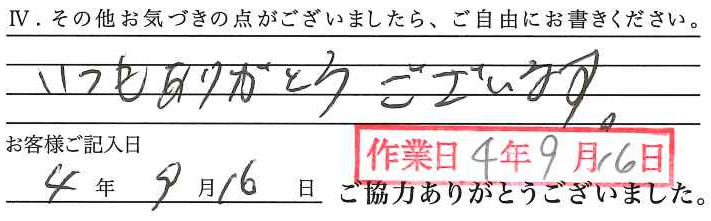 Ⅳ．その他お気づきの点がございましたら、ご自由にお書きください。
いつもありがとうございます。
お客様ご記入日
作業日 4年9月16日
4年9月16日 ご協力ありがとうございました。